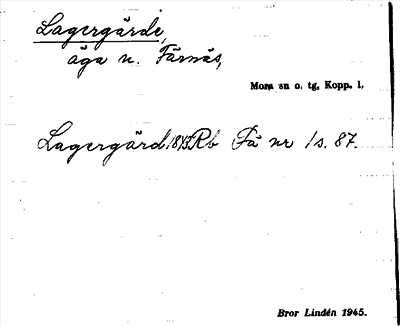 Lagergärde,
äga n. Färnäs,
Mora sn o. tg, Kopp. l.
Lagergärd 1845 Rb Få nr 1 s. 87.
Bror Lindén 1945.